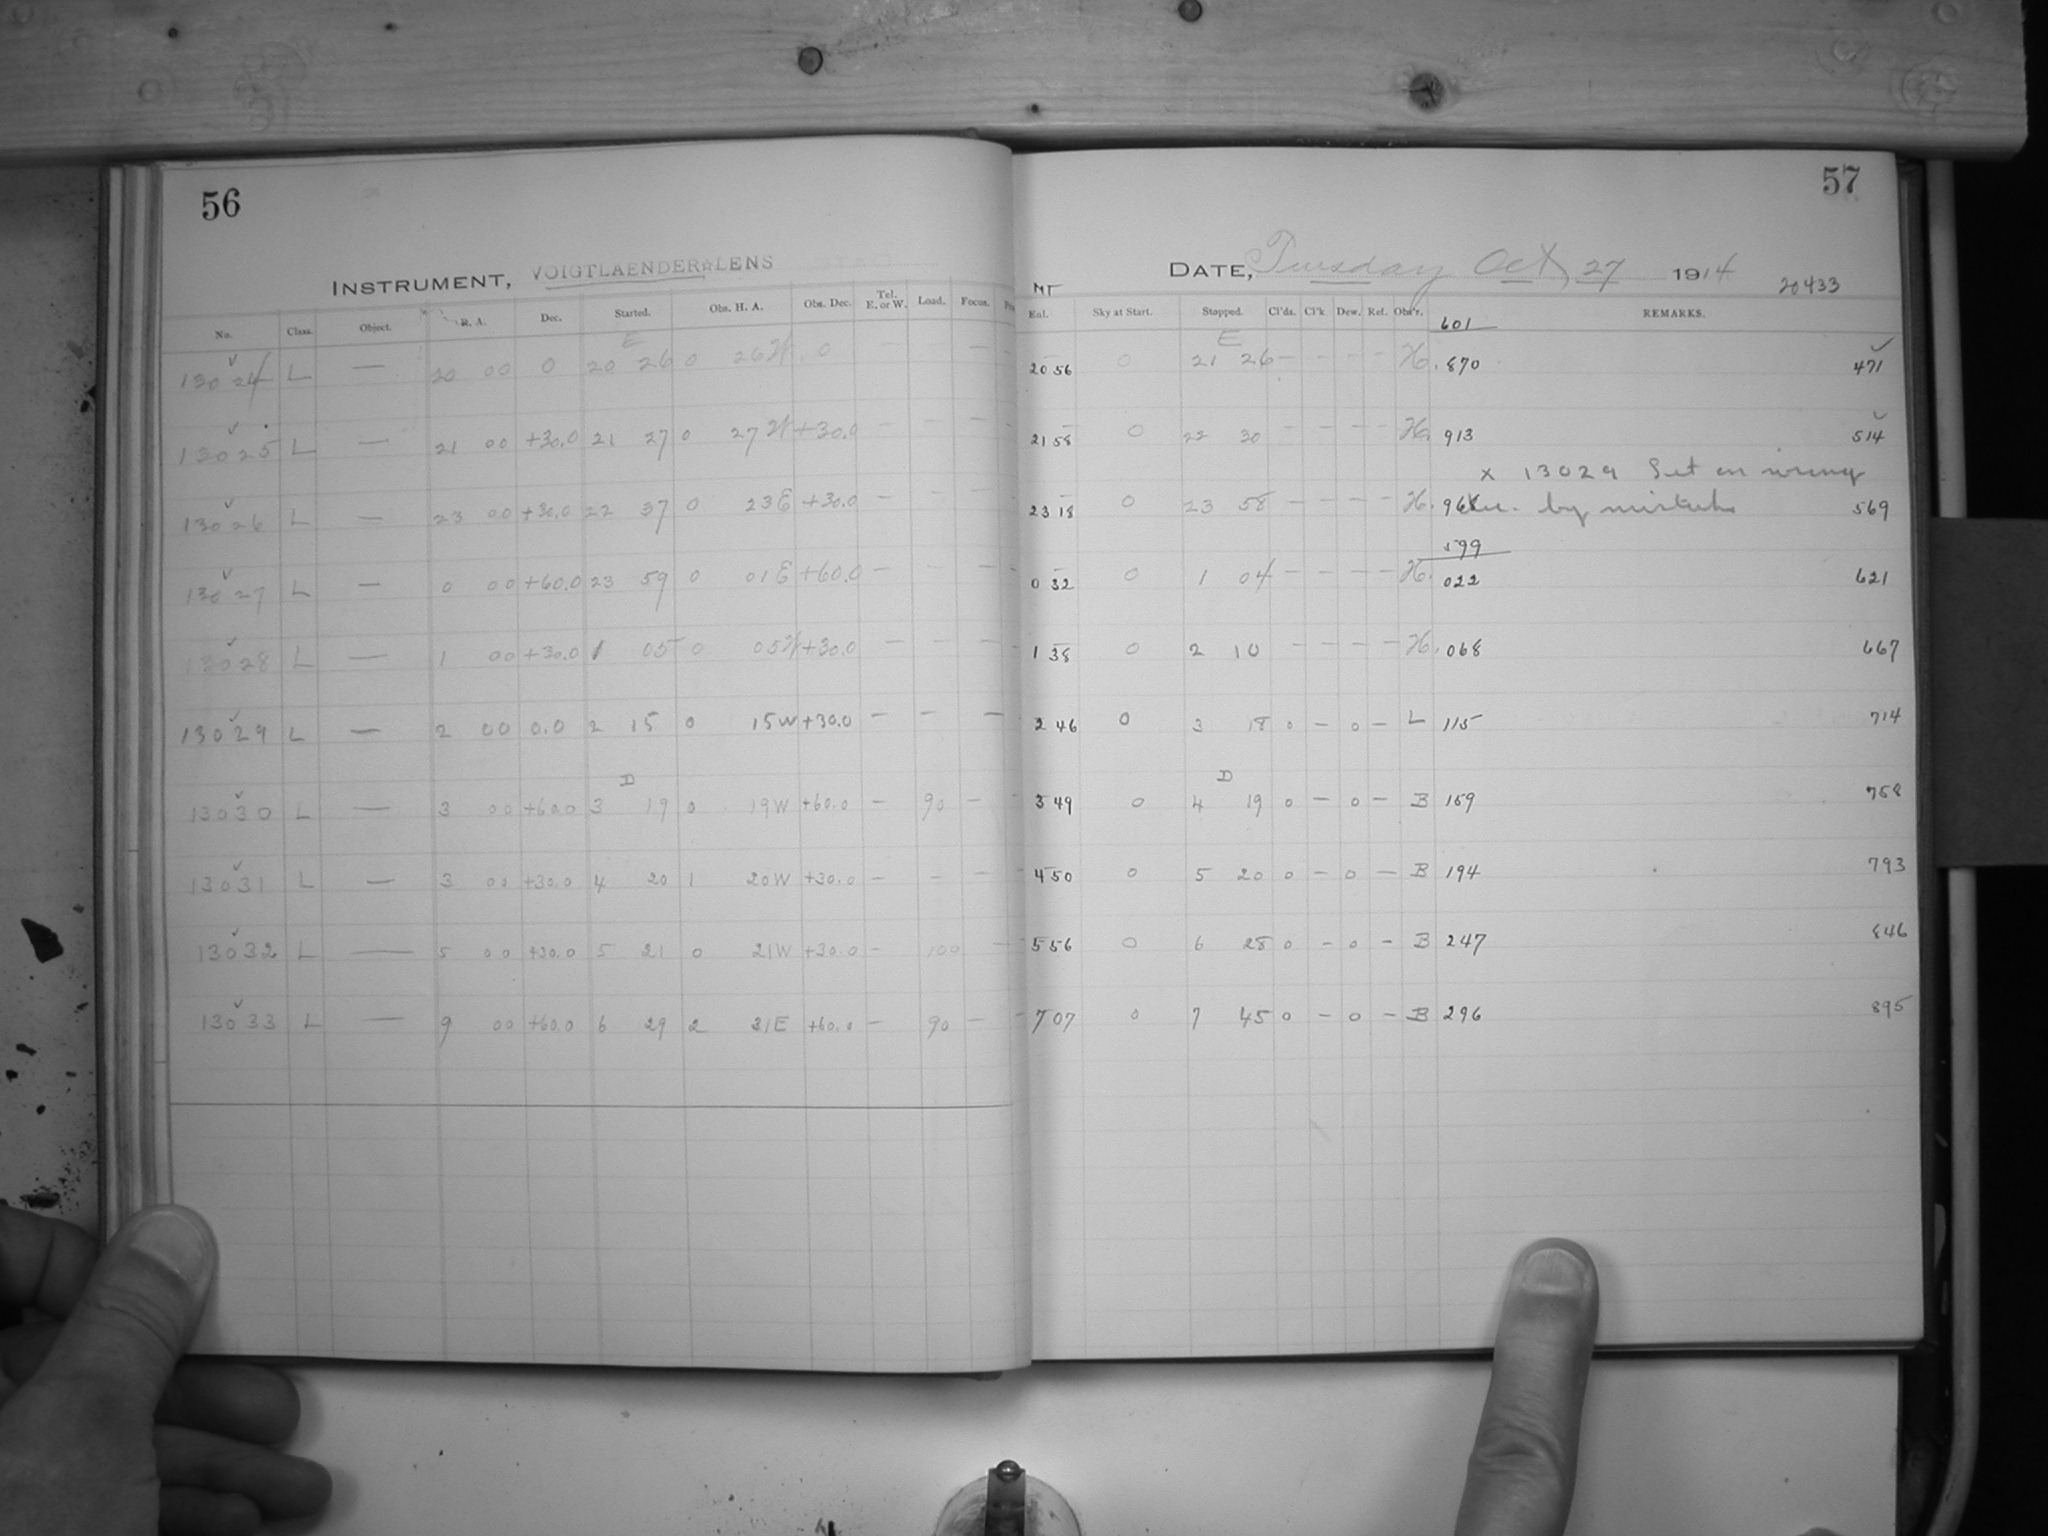 56
INSTRUMENT, VOIGTLAENDER LENS
No. Class. Object. R. A. Dec. Started. Obs. H. A. Obs. Dec. Tel. E. or W. Load. Focus.
E
13024 L — 20 00 0 20 26 0 26W 0 — —
13025 L — 21 00 +30.0 21 27 0 27W +30.0 — — —
13026 L — 23 00 +30.0 22 37 0 23E +30.0 — — —
13027 L — 0 00 +60.0 23 59 0 01E +60.0 — — —
13028 L — 1 00 +30.0 1 05 0 05W +30.0 — — —
13029 L — 2 00 0.0 2 15 0 15W +30.0 — — —
D
13030 L — 3 00 +60.0 3 19 0 19W +60.0 — 90 —
13031 L — 3 00 +30.0 4 20 1 20W +30.0 — — —
13032 L — 5 00 +30.0 5 21 0 21W +30.0 — 100 —
13033 L — 9 00 +60.0 6 29 2 31E +60.0 — 90 —
57
DATE, Tuesday Oct 27 1914
20433
MT
Exl. Sky at Start. Stopped. Cl'ds. Cl'k Dew. Ref. Obs'r. REMARKS.
601
E
20 56 0 21 26 — — — — H. 870 471
21 58 0 22 30 — — — — H. 913 514
x 13029 Set on wrong
23 18 0 23 58 — — — — H. 968 Dec. by mistake 569
599
0 32 0 1 04 — — — — H. 022 621
1 38 0 2 10 — — — — H. 068 667
2 46 0 3 18 0 — 0 — L 115 714
D
3 49 0 4 19 0 — 0 — B 159 758
4 50 0 5 20 0 — 0 — B 194 793
5 56 0 6 28 0 — 0 — B 247 846
7 07 0 7 45 0 — 0 — B 296 895